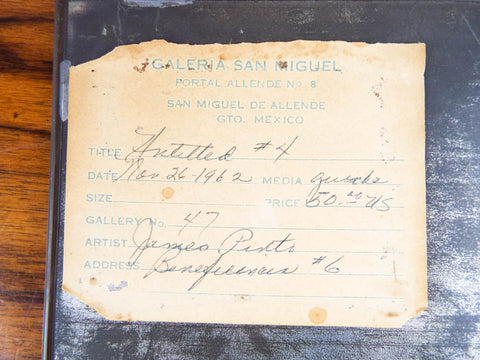 GALERIA SAN MIGUEL
PORTAL ALLENDE No 8
SAN MIGUEL DE ALLENDE
GTO. MEXICO
TITLE Untitled #4
DATE Nov 26-1962 MEDIA guache
SIZE PRICE 50.00 US
GALLERY No. 47
ARTIST James Pinto
ADDRESS Beneficencia #6